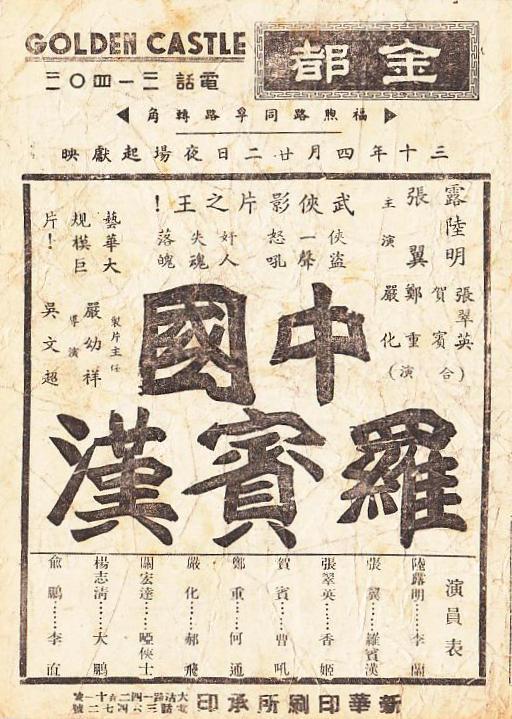 GOLDEN CASTLE
金都
電話 三一四〇二
福煦路同孚路轉角
三十年四月廿二日夜場起獻映
露陸明
張翼
主演
張翠英
賀賓
鄭重
嚴化
(合演)
武俠影片之王！
俠盜一聲怒吼
奸人失魂落魄
藝華大規模巨片！
製片主任
嚴幼祥
導演
吳文超
中國
羅賓漢
演員表
陸露明……李蘭
張翼……羅賓漢
張翠英……香姬
賀賓……曹吼
鄭重……何通
嚴化……郝飛
關宏達……啞俠士
楊志清……大鵬
俞鵬……李直
新華印刷所承印